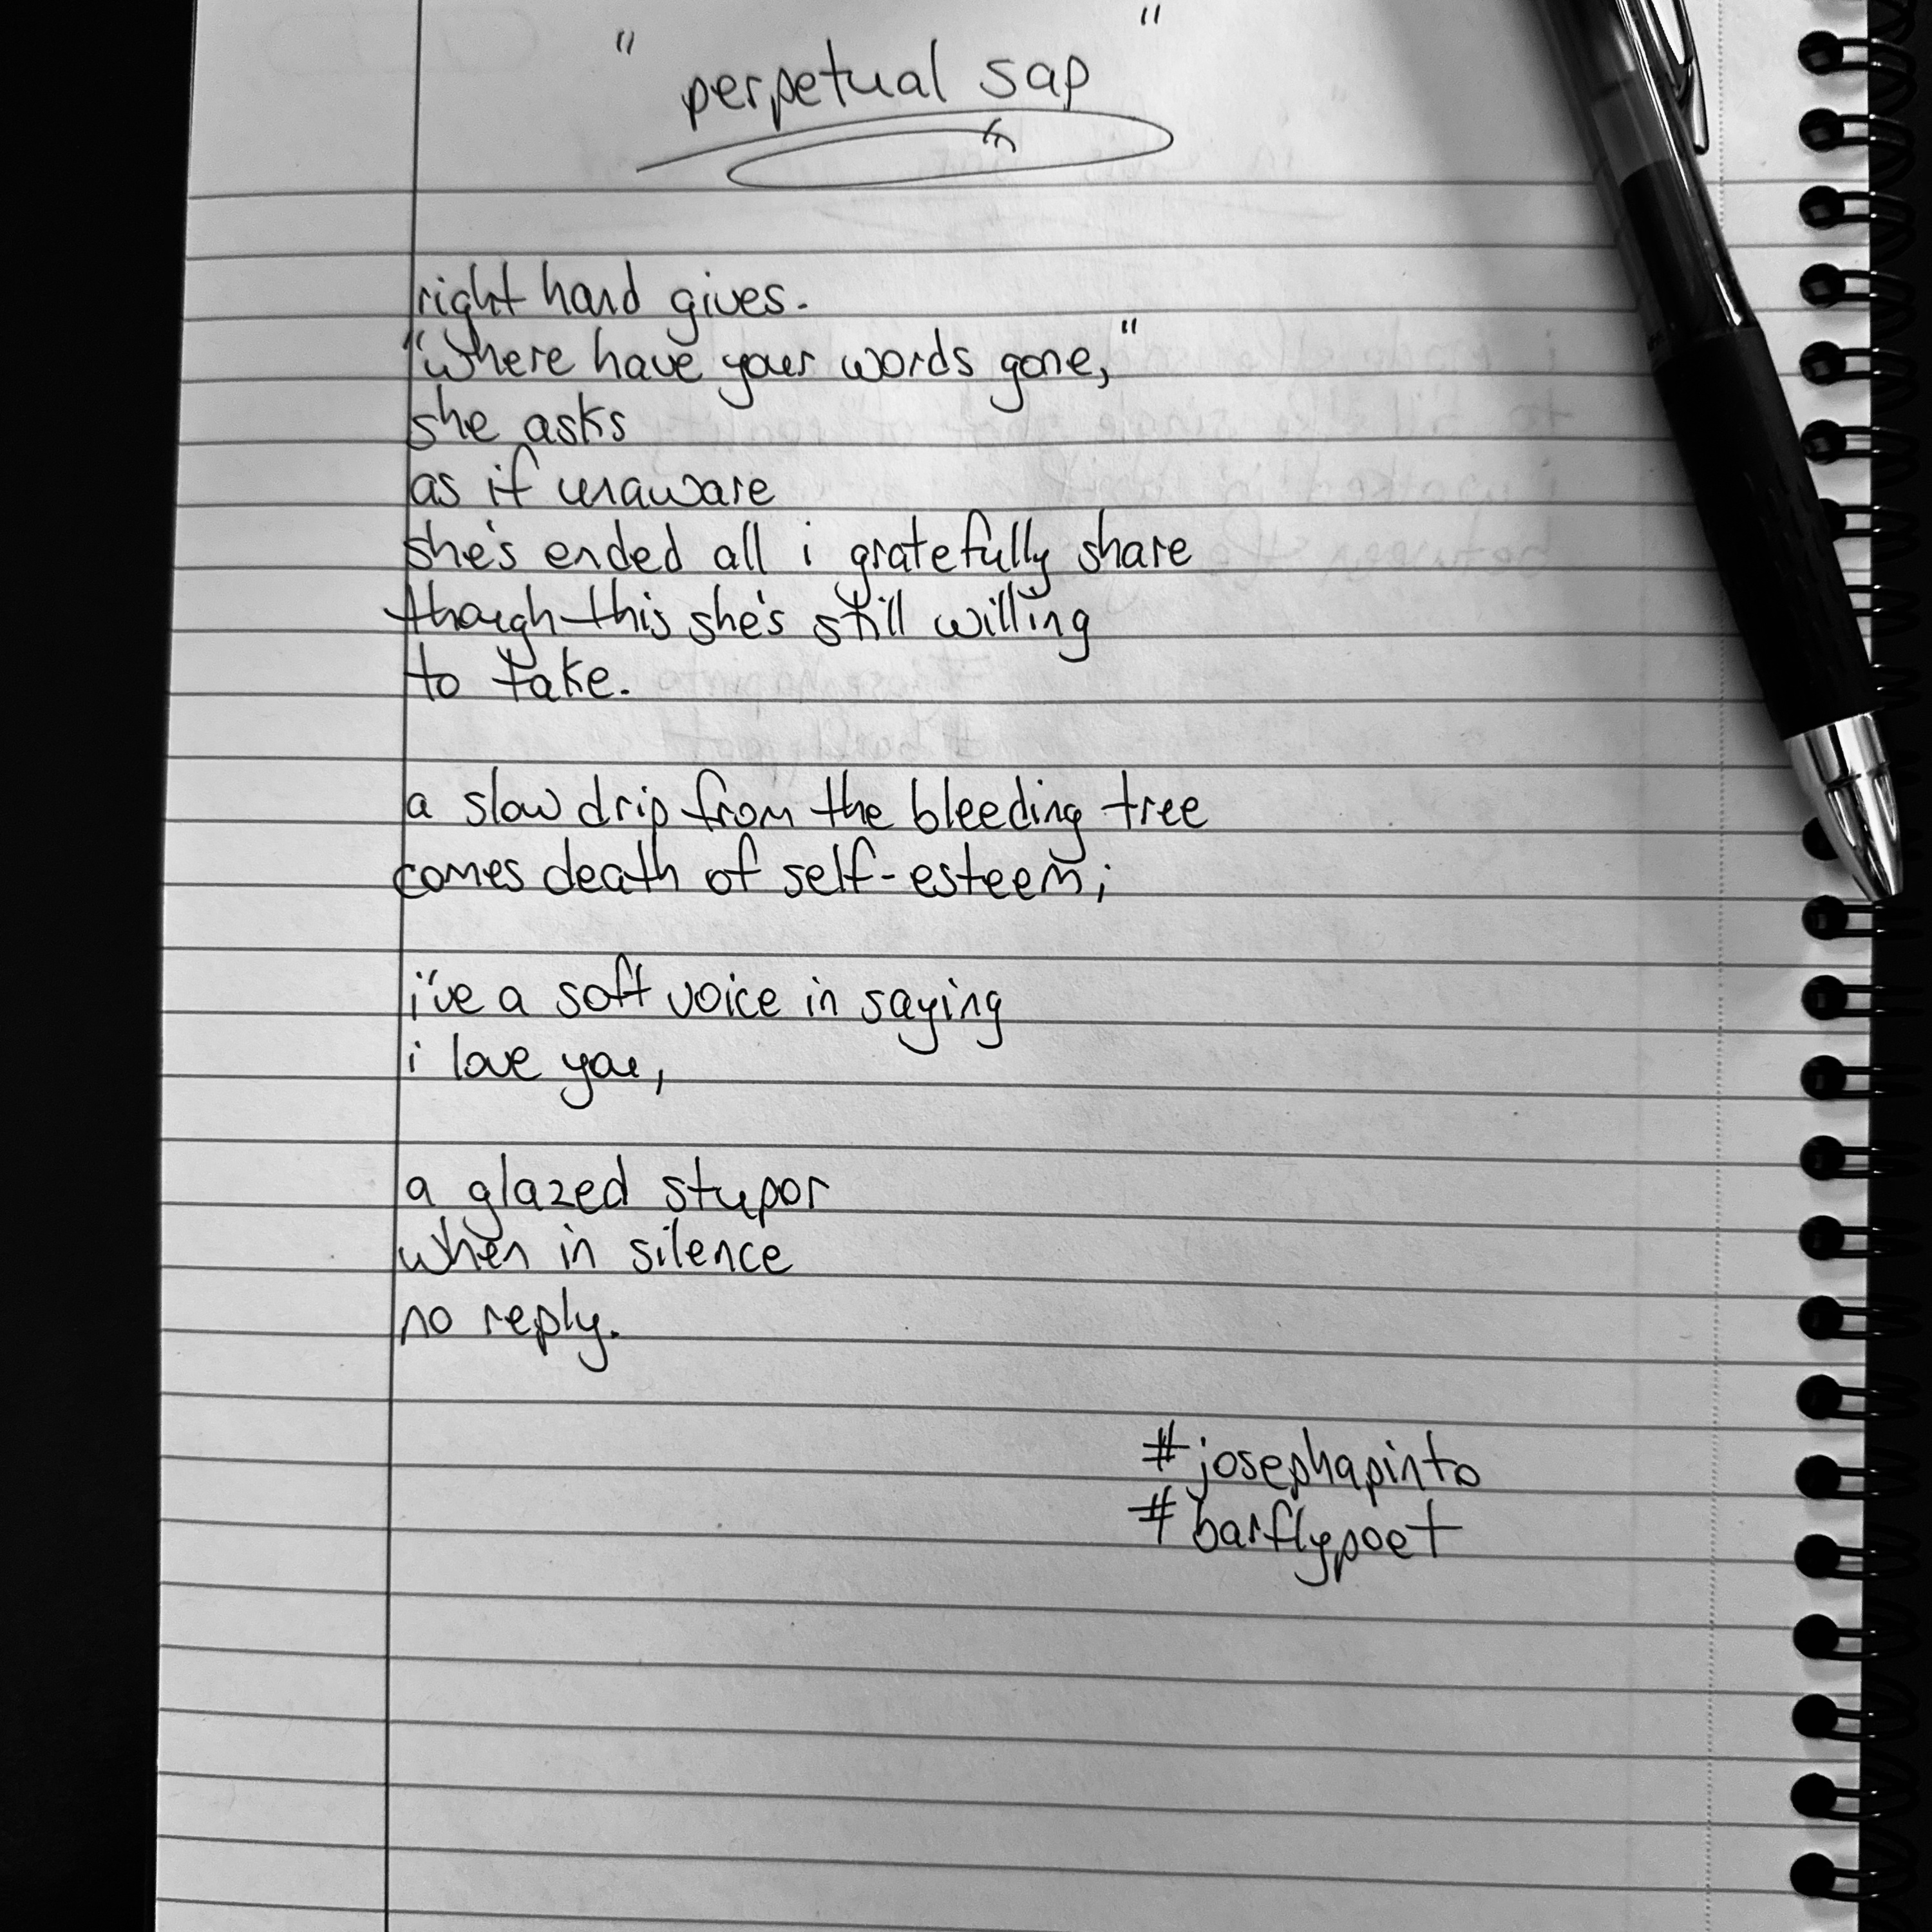 "perpetual sap"
right hand gives.
"where have your words gone,"
she asks
as if unaware
she's ended all i gratefully share
though this she's still willing
to take.
a slow drip from the bleeding tree
comes death of self-esteem;
i've a soft voice in saying
i love you,
a glazed stupor
when in silence
no reply.
#josephapinto
#barflypoet